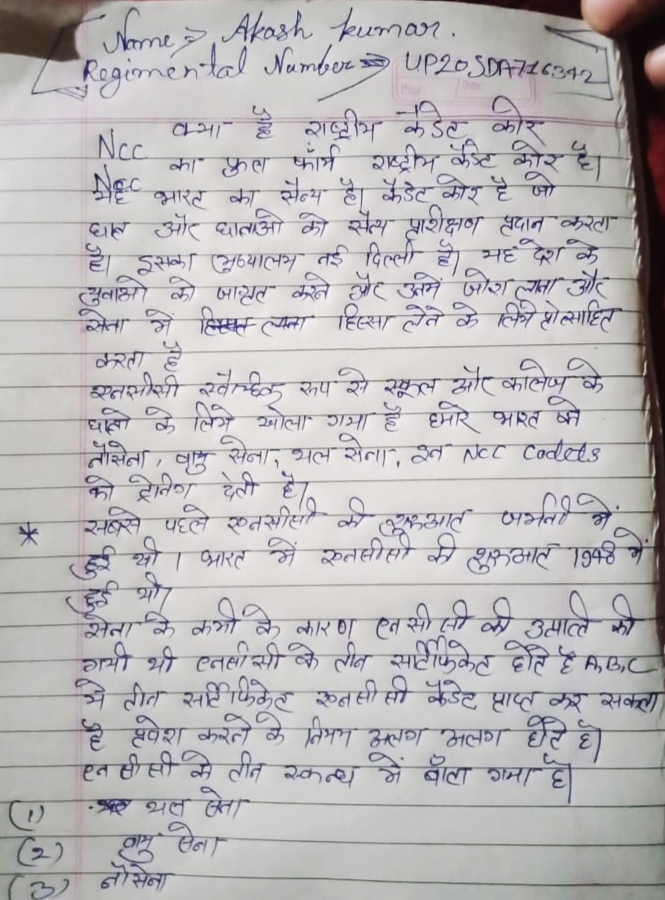 Name => Akash kumar.
Regimental Number => UP20SDA716342
क्या है राष्ट्रीय कैडेट कोर
NCC का फुल फॉर्म राष्ट्रीय कैडेट कोर है।
Ncc यह भारत का सैन्य है। कैडेट कोर है जो
छात्र और छात्राओं को सैन्य प्रशिक्षण प्रदान करता
है। इसका मुख्यालय नई दिल्ली है। यह देश के
युवाओं को जाग्रत करने और उनमें जोश लाना और
सेना में हिस्सा लेने के लिये प्रोत्साहित
करता है
एनसीसी स्वैच्छिक रूप से स्कूल और कालेज के
छात्रों के लिये खोला गया है हमारे भारत की
नौसेना, वायु सेना, थल सेना, इन NCC Cadets
को ट्रेनिंग देती है।
* सबसे पहले एनसीसी की शुरुआत जर्मनी में
हुई थी। भारत में एनसीसी की शुरुआत 1948 में
हुई थी।
सेना के कमी के कारण एनसीसी की उत्पत्ति की
गयी थी एनसीसी के तीन सर्टिफिकेट होते है A,B,C
ये तीन सर्टिफिकेट एनसीसी कैडेट प्राप्त कर सकता
है प्रवेश करने के नियम अलग अलग होते है।
एनसीसी को तीन स्कन्ध में बाँटा गया है।
(1) थल सेना
(2) वायु सेना
(3) नौसेना